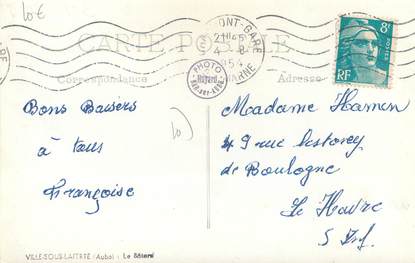 10€
CARTE POSTALE
Correspondance
Adresse
ONT-GARE
21H45
4-8
MARNE
PHOTO
8F
POSTES
RF
Bons Baisers
à tous
Françoise
10
Madame Hamon
49 rue Lestorey
de Boulogne
Le Havre
S Inf.
VILLE-SOUS-LAFERTÉ (Aube) - Le Bétard